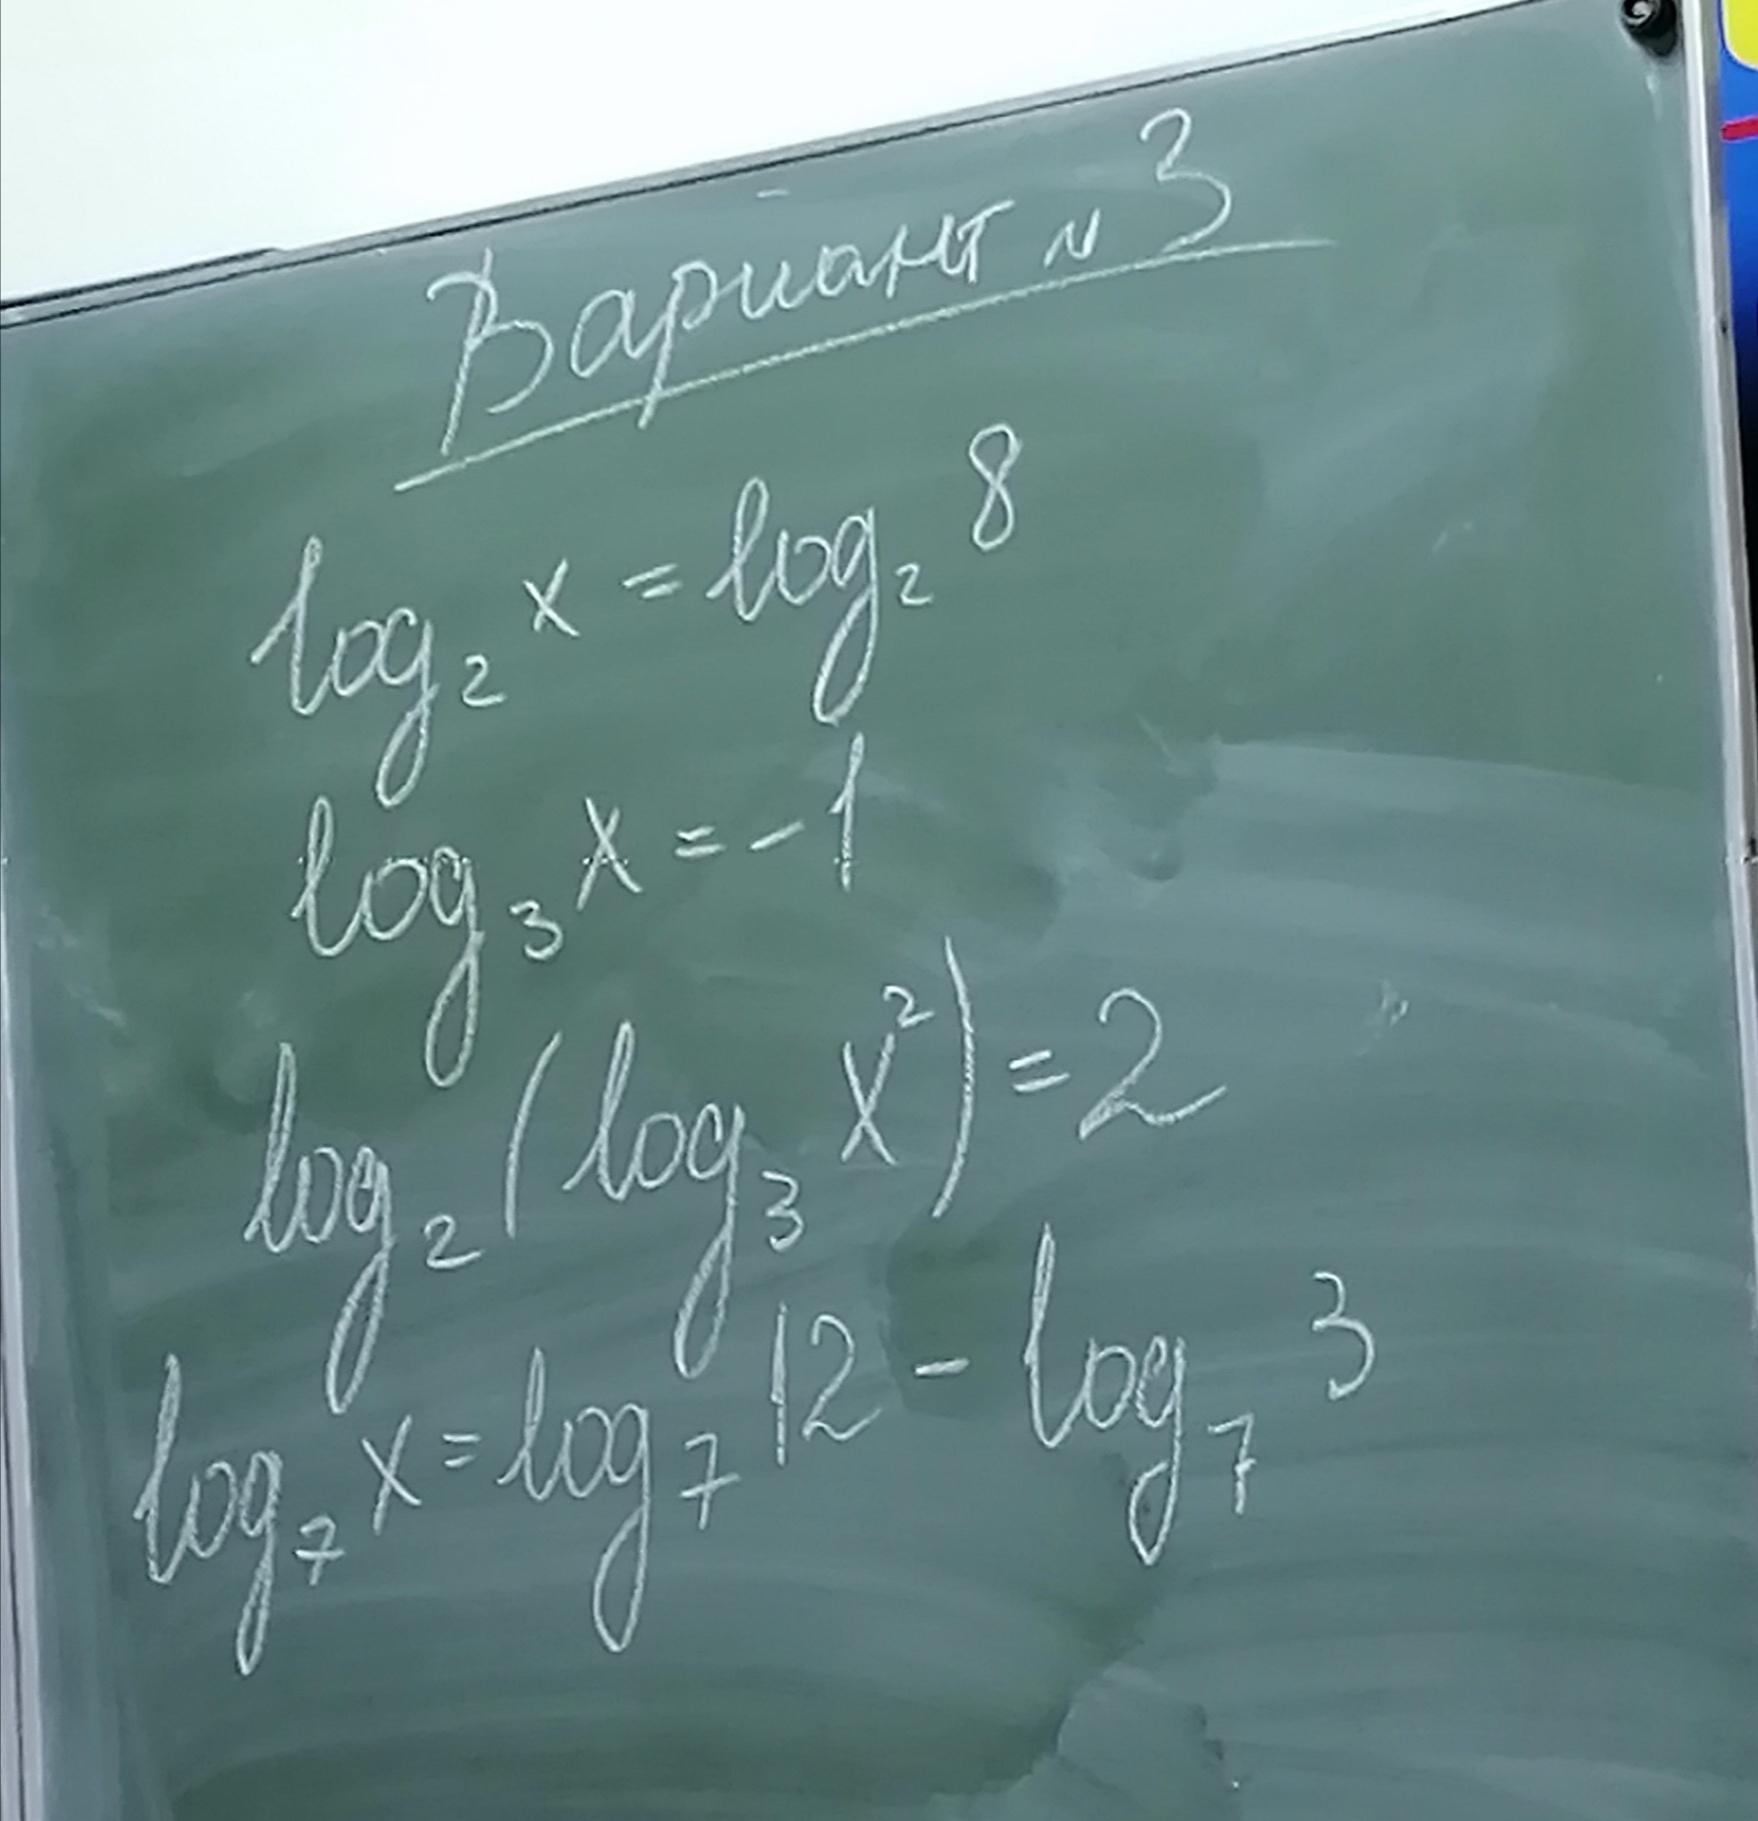 Вариант N 3
log₂ x = log₂ 8
log₃ x = -1
log₂ (log₃ x²) = 2
log₇ x = log₇ 12 - log₇ 3